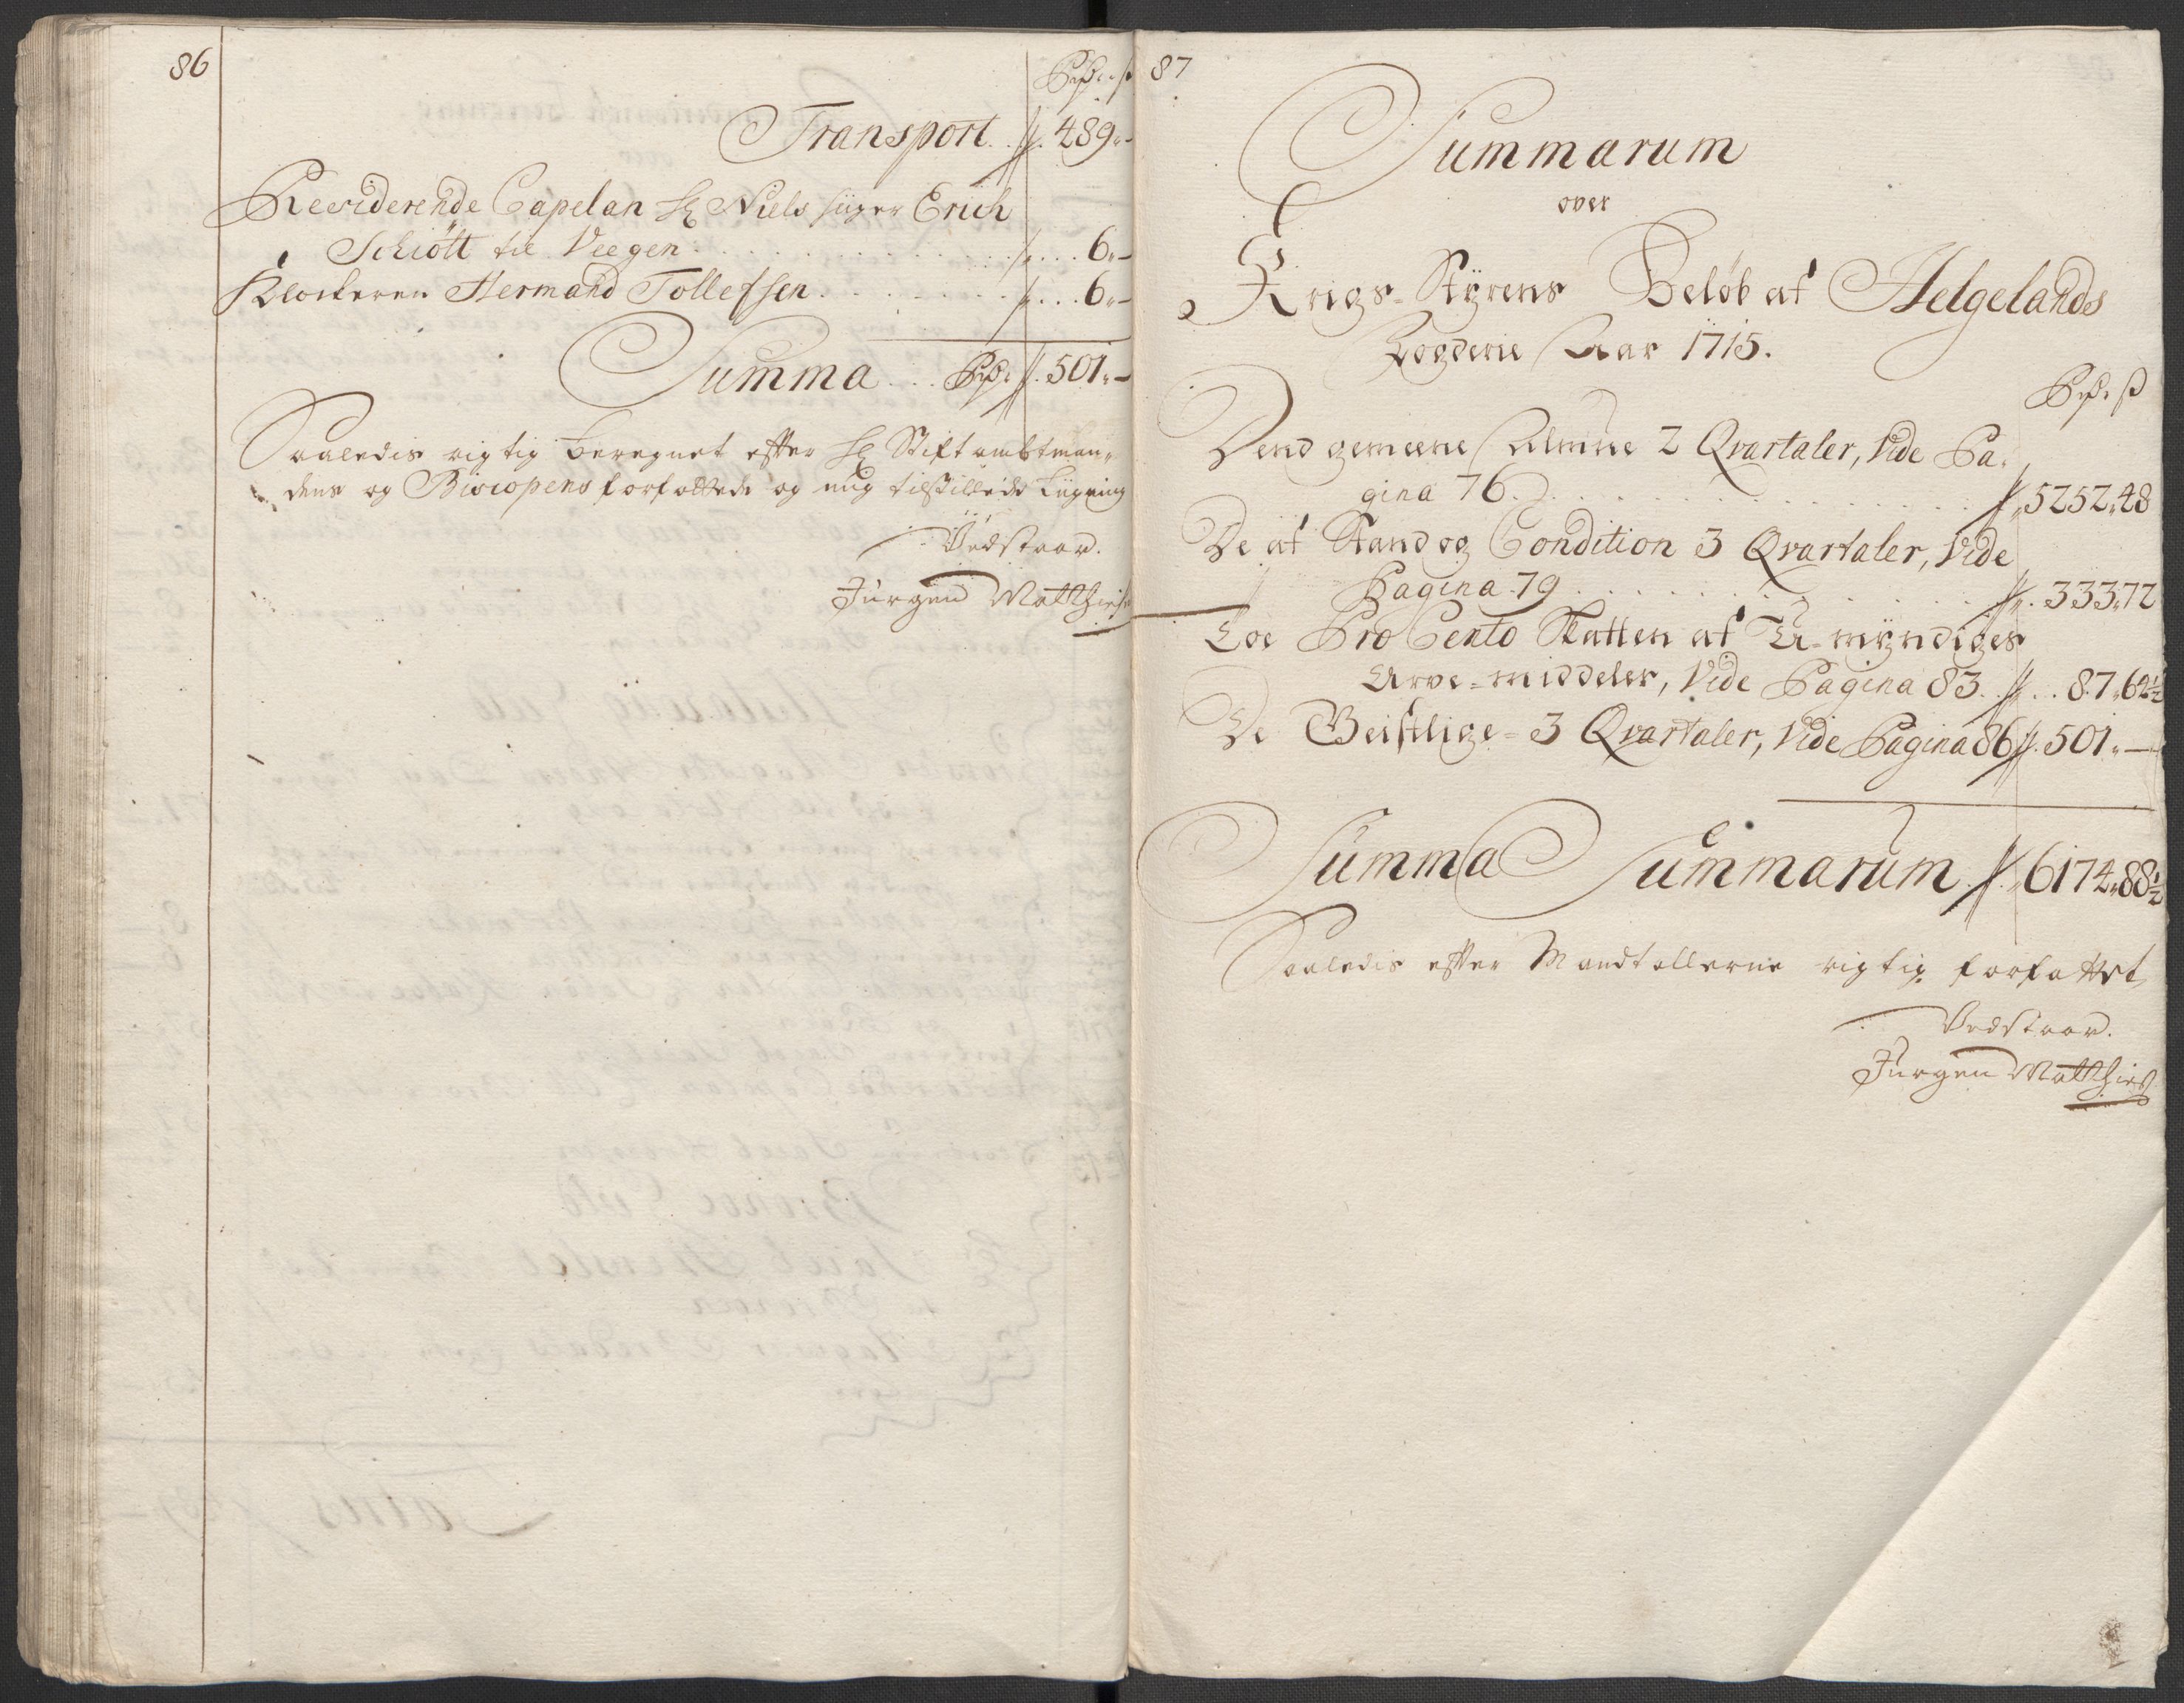 86
Rdr. ß
Transport . . 489„-
Resviderende Capelan Hr Niels Erich
Schiött til Veegen . . . 6„-
Klockeren Hermand Tollefsen . . . 6„-
Summa . . . Rdr . 501„-
Saaledis rigtig beregnet efter Hr Stiftambtman„
dens og Biscopens forfattede og mig tilstillede Ligning
Vedstaar.
Jürgen Matthies
87
Summarum
over
Krigs-Styrens Beløb af Helgelands
Fogderie Aar 1715.
Rdr. ß
Dend gemeene Almue 2 Qvartaler, Vide Pa„
gina 76 . . . 5252„48
De af Stand og Condition 3 Qvartaler, Vide
Pagina 79 . . . 333„72
Toe Pro Cento Skatten af U-myndiges
Arve-middeler, Vide Pagina 83 . . 87„64½
De Geistlige - 3 Qvartaler, Vide Pagina 86 . 501„-
Summa Summarum . 6174„88½
Saaledis efter Mandtallerne rigtig forfattet,
Vedstaar.
Jürgen Matthies